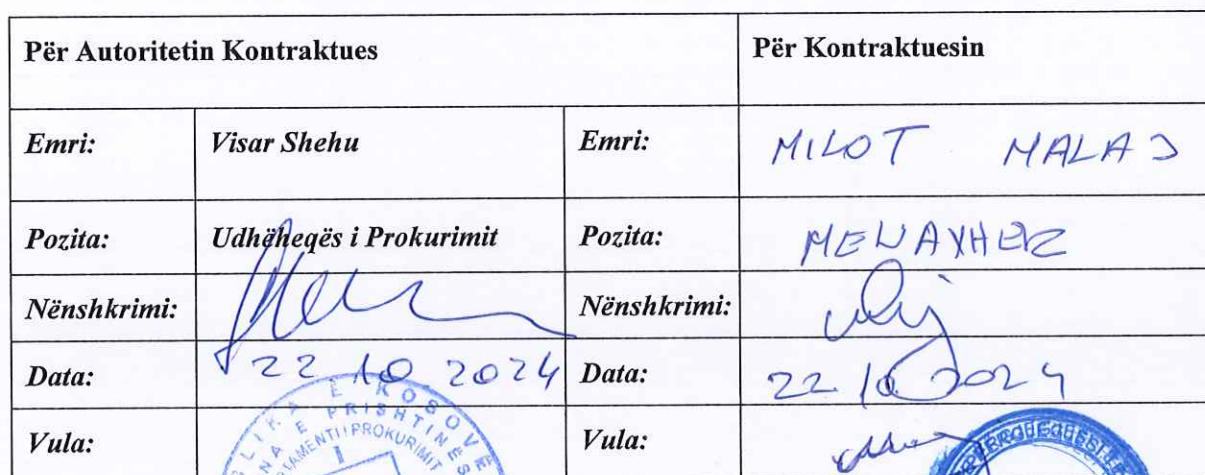 Për Autoritetin Kontraktues Për Kontraktuesin
Emri: Visar Shehu Emri: MILOT MALAJ
Pozita: Udhëheqës i Prokurimit Pozita: MENAXHER
Nënshkrimi: Nënshkrimi:
Data: 22 10 2024 Data: 22 10 2024
Vula: Vula:
E KOSOVË
E PRISHTINËS
I PROKURIMIT